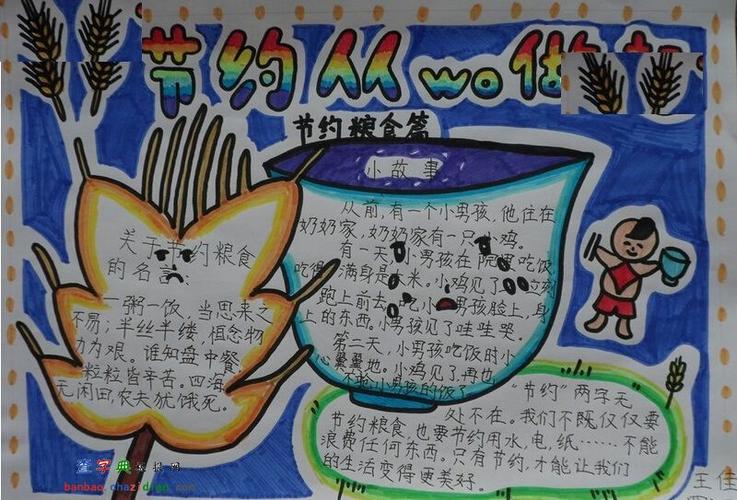 节约从wo做
节约粮食篇
关于节约粮食
的名言:
一粥一饭，当思来之
不易；半丝半缕，恒念物
力为艰。谁知盘中餐，
粒粒皆辛苦。四海
无闲田，农夫犹饿死。
小故事
从前，有一个小男孩，他住在
奶奶家，奶奶家有一只小鸡。
有一天，小男孩在院里吃饭，
吃得满身是大米。小鸡见了，立刻
跑上前去，吃小男孩脸上，身
上的东西。小男孩见了哇哇哭。
第二天，小男孩吃饭时小
心翼翼地。小鸡见了，再也
不吃小男孩的饭了。
“节约”两字无
处不在。我们不既仅仅要
节约粮食，也要节约用水，电，纸……不能
浪费任何东西。只有节约，才能让我们
的生活变得更美好。
王佳
查字典板报网
banbao.chazidian.com